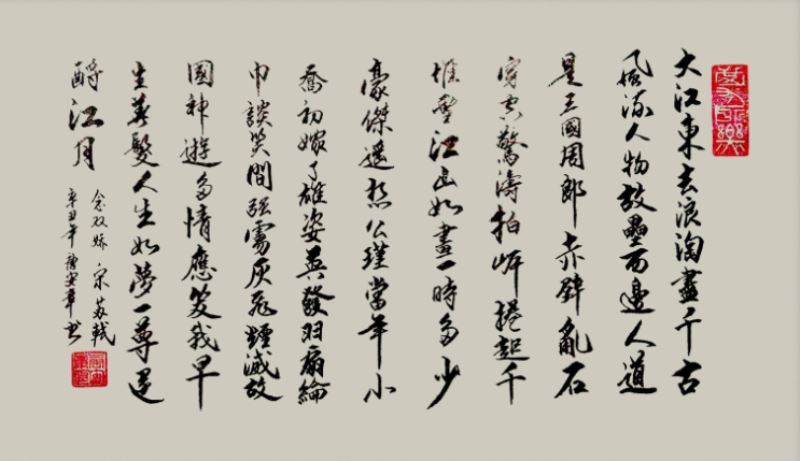 大江東去浪淘盡千古
風流人物故壘西邊人道
是三國周郎赤壁亂石
穿空驚濤拍岸捲起千
堆雪江山如畫一時多少
豪傑遙想公瑾當年小
喬初嫁了雄姿英發羽扇綸
巾談笑間強虜灰飛煙滅故
國神遊多情應笑我早
生華髮人生如夢一尊還
酹江月
念奴嬌 宋 苏軾
辛丑年 书